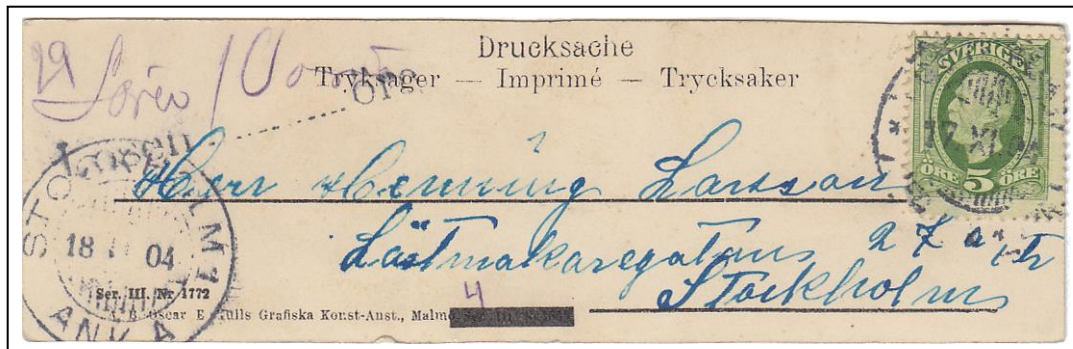 Drucksache
Tryksager — Imprimé — Trycksaker
29
ÖRE
SVERIGE
17 XI
ÖRE 5 ÖRE
Herr Henning Larsson
Lästmakaregatan 27
Stockholm
STOCKHOLM 1
18 04
ANK
Ser. III. Nr 1772
Oscar E. Kulls Grafiska Konst-Anst., Malmö
4